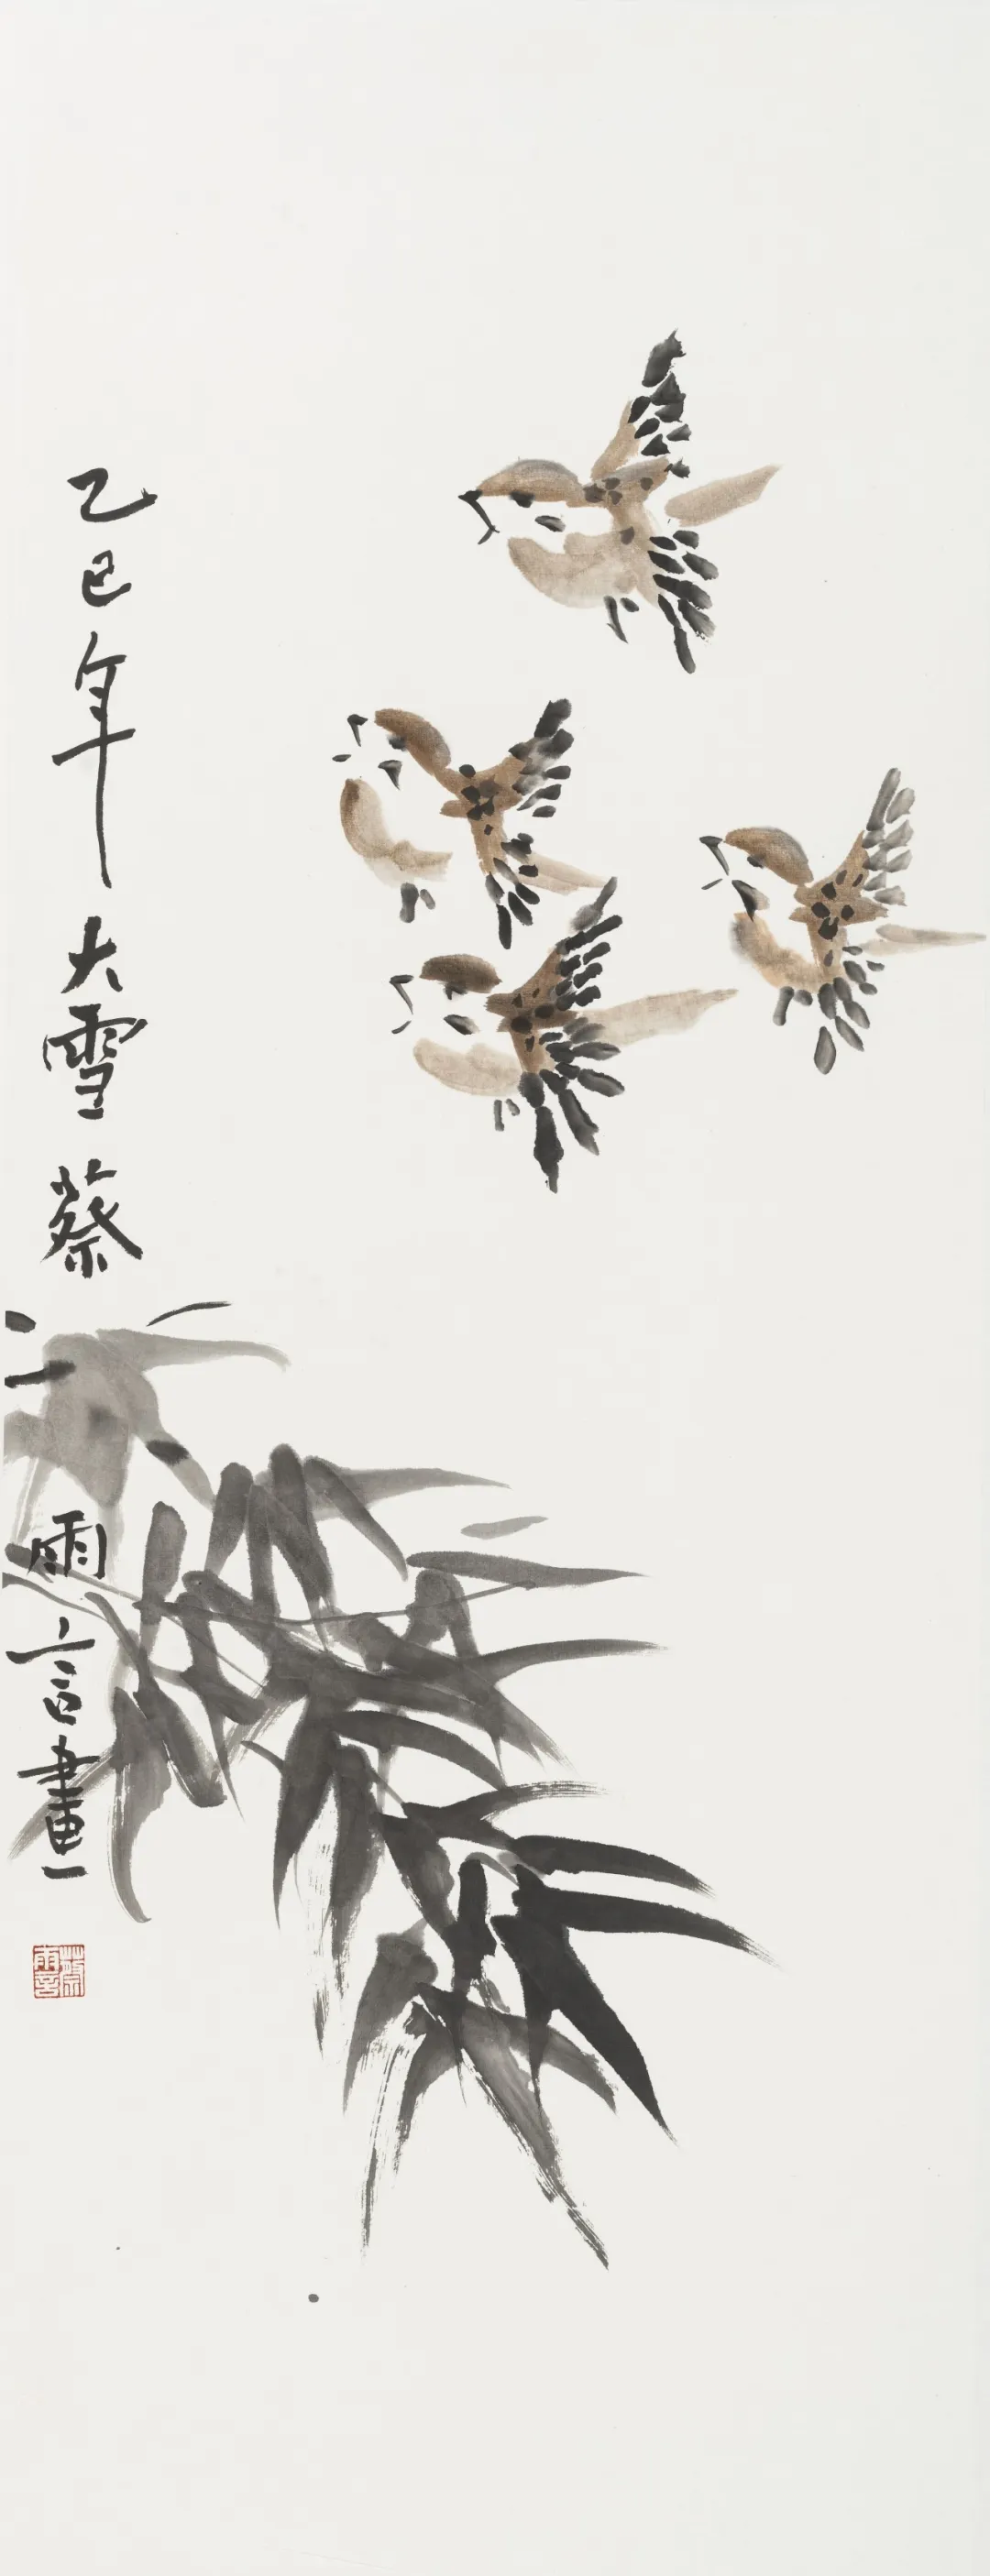 乙巳年大雪蔡雨言畫
蔡雨言